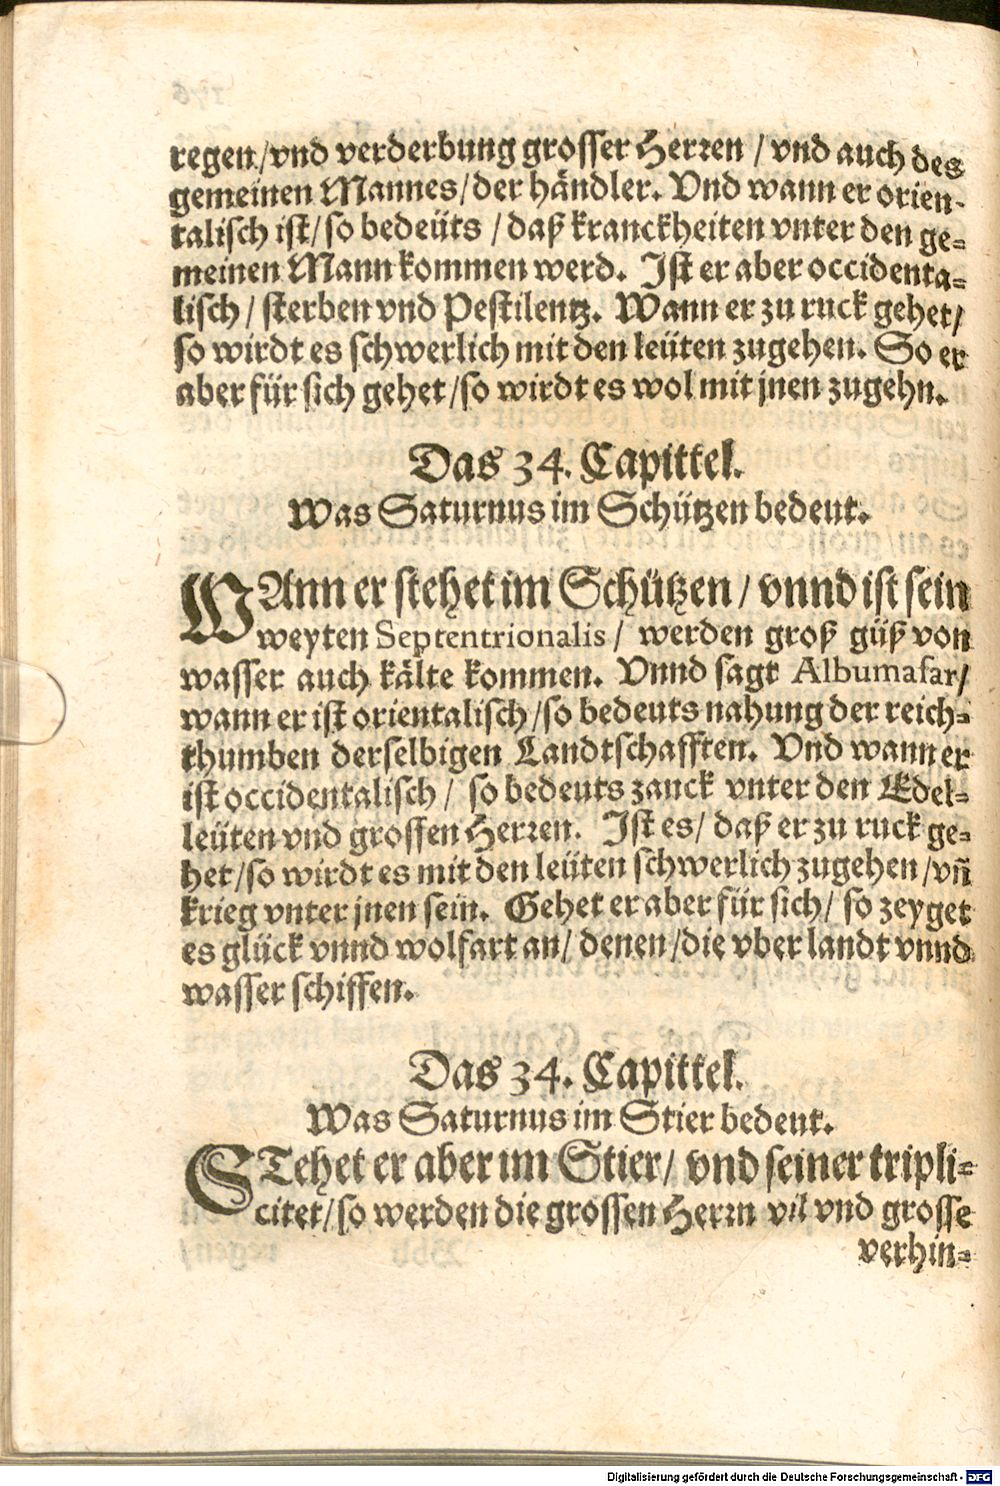 regen/vnd verderbung grosser Herren / vnd auch des
gemeinen Mannes/der händler. Vnd wann er orien-
talisch ist/so bedeüts / daß kranckheiten vnter den ge-
meinen Mann kommen werd. Ist er aber occidenta-
lisch/ sterben vnd Pestilentz. Wann er zu ruck gehet/
so wirdt es schwerlich mit den leüten zugehen. So er
aber für sich gehet/so wirdt es wol mit jnen zugehn.
Das 34. Capittel.
Was Saturnus im Schützen bedeut.
WAnn er stehet im Schützen/ vnnd ist sein
weyten Septentrionalis/ werden groß güß von
wasser auch kälte kommen. Vnnd sagt Albumasar/
wann er ist orientalisch/so bedeuts nahung der reich-
thumben derselbigen Landtschafften. Vnd wann er
ist occidentalisch/ so bedeuts zanck vnter den Edel-
leüten vnd grossen Herren. Ist es/ daß er zu ruck ge-
het/so wirdt es mit den leüten schwerlich zugehen/vñ
krieg vnter jnen sein. Gehet er aber für sich/ so zeyget
es glück vnnd wolfart an/ denen/die vber landt vnnd
wasser schiffen.
Das 34. Capittel.
Was Saturnus im Stier bedeut.
STehet er aber im Stier/ vnd seiner tripli-
citet/so werden die grossen Herrn vil vnd grosse
verhin-
Digitalisierung gefördert durch die Deutsche Forschungsgemeinschaft - DFG